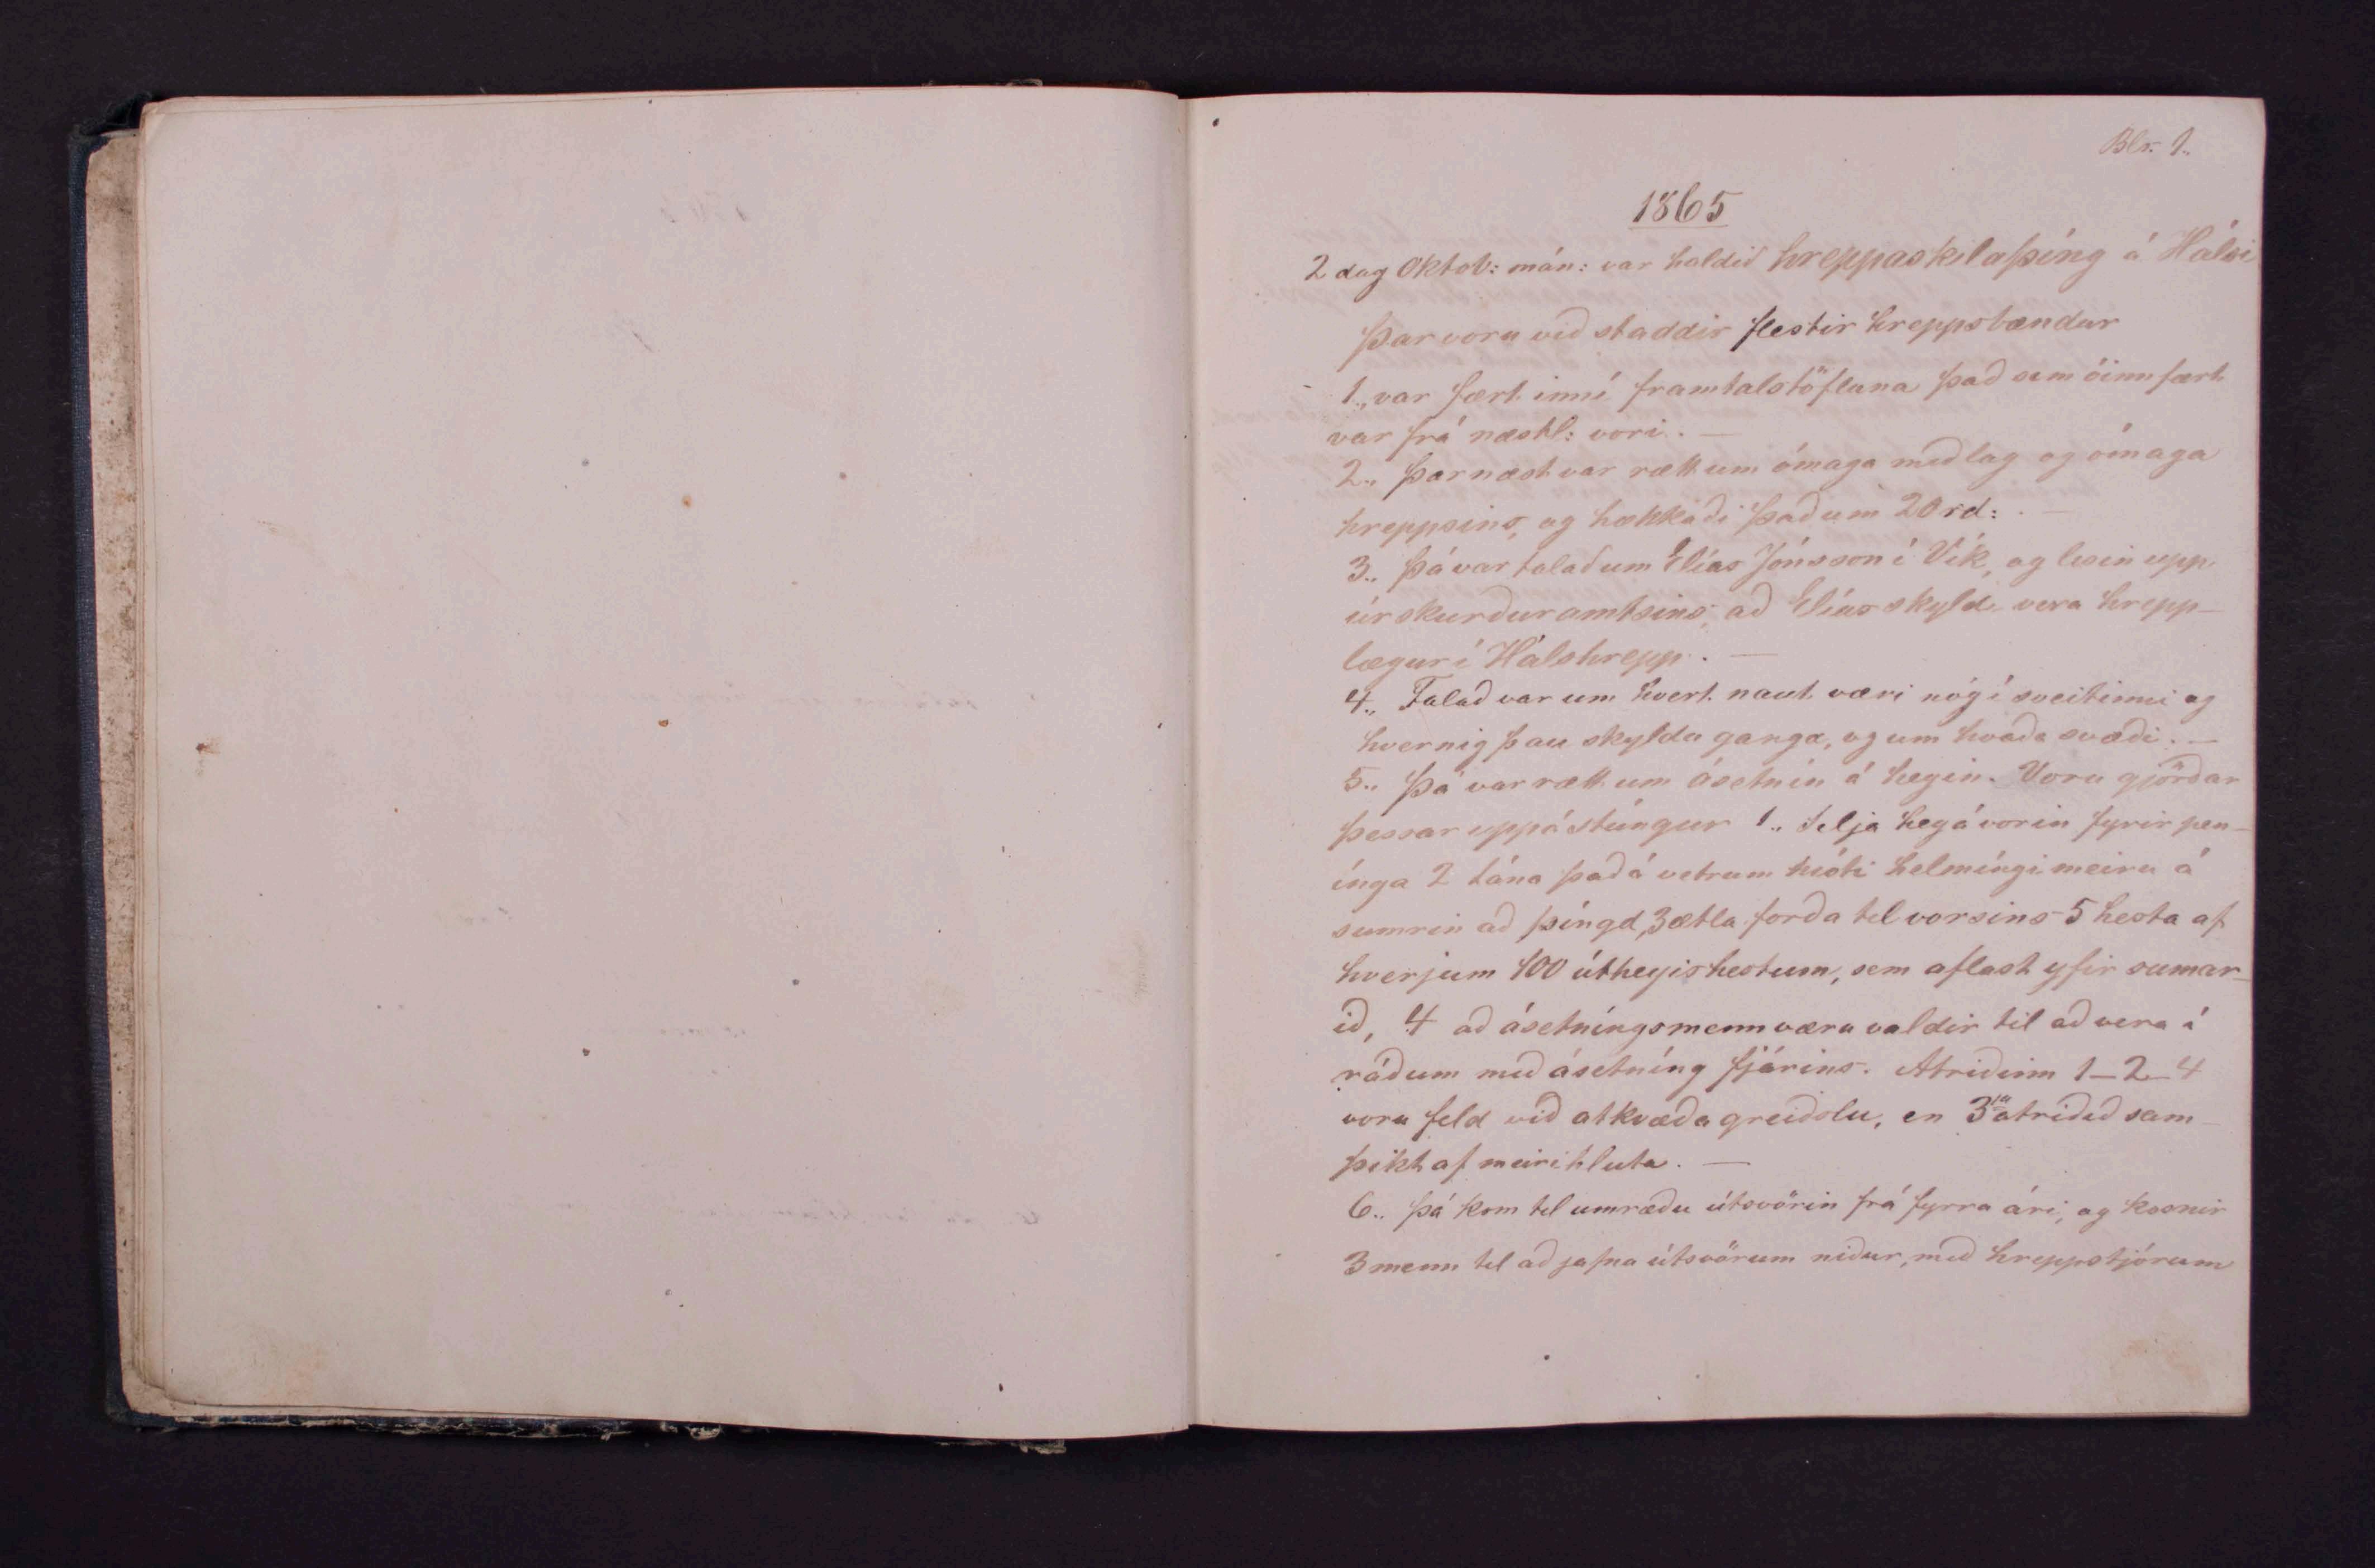 Bls. 1.
1865
2 dag Oktob: mán: var haldið hreppaskilaþíng á Hálsi
Þar voru við staddir flestir hreppsbændur
1., var fært inní framtalstöfluna það sem óinnfært
var frá næstl: vori. —
2., Þarnæst var rætt um ómaga meðlag og ómaga
hreppsins, og hækkaði það um 20 rd: . —
3., Þá var talað um Elías Jónsson í Vík, og lesin upp
úrskurður amtsins, að Elías skyldi vera hrepp-
lægur í Hálshrepp. —
4., Talað var um hvert naut væri nóg í sveitinni og
hvernig þau skyldu ganga, og um hvaða svæði. —
5., Þá var rætt um ásetnín á heyin. Voru gjörðar
þessar uppástúngur 1., selja hey á vorin fyrir pen-
ínga 2 lána það á vetrum móti helmíngi meiru á
sumrin að þíngd, 3 ætla forða til vorsins 5 hesta af
hverjum 100 útheyishestum, sem aflast yfir sumar-
ið, 4 að ásetníngsmenn væru valdir til að vera í
ráðum með ásetníng fjárins. Atriðinn 1_2_4
voru feld við atkvæðagreiðslu, en 3ja atriðið sam-
þikt af meirihluta. —
6., Þá kom til umræðu útsvörin frá fyrra ári, og kosnir
3 menn til að jafna útsvörum niður, með hreppstjórum